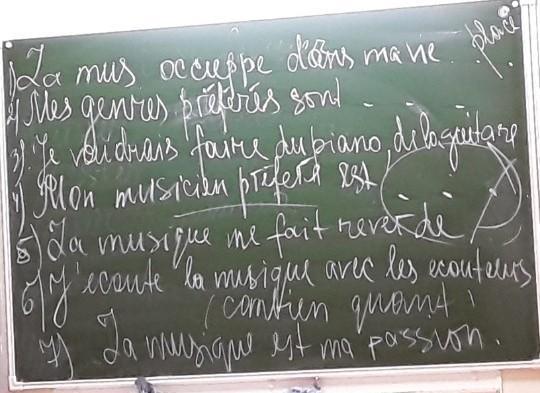 1) La mus occuppe dans ma vie ... place.
2) Mes genres préférés sont . . .
3) Je voudrais faire du piano, de la guitare
4) Mon musicien préféré est
5) La musique me fait rever de
6) J'ecoute la musique avec les ecouteurs
(combien quant)
7) La musique est ma passion.